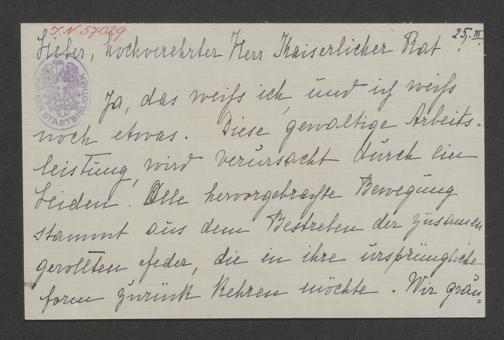 J.N 57029
25. III
Lieber, hochverehrter Herr Kaiserlicher Rat
Ja, das weiß ich, und ich weiß
noch etwas. Diese gewaltige Arbeits-
leistung, wird verursacht durch ein
Leiden. Alle hervorgebrachte Bewegung
stammt aus dem Bestreben der zusamen
gerollten Feder, die in ihre ursprüngliche
form zurück kehren möchte. Wir grau-